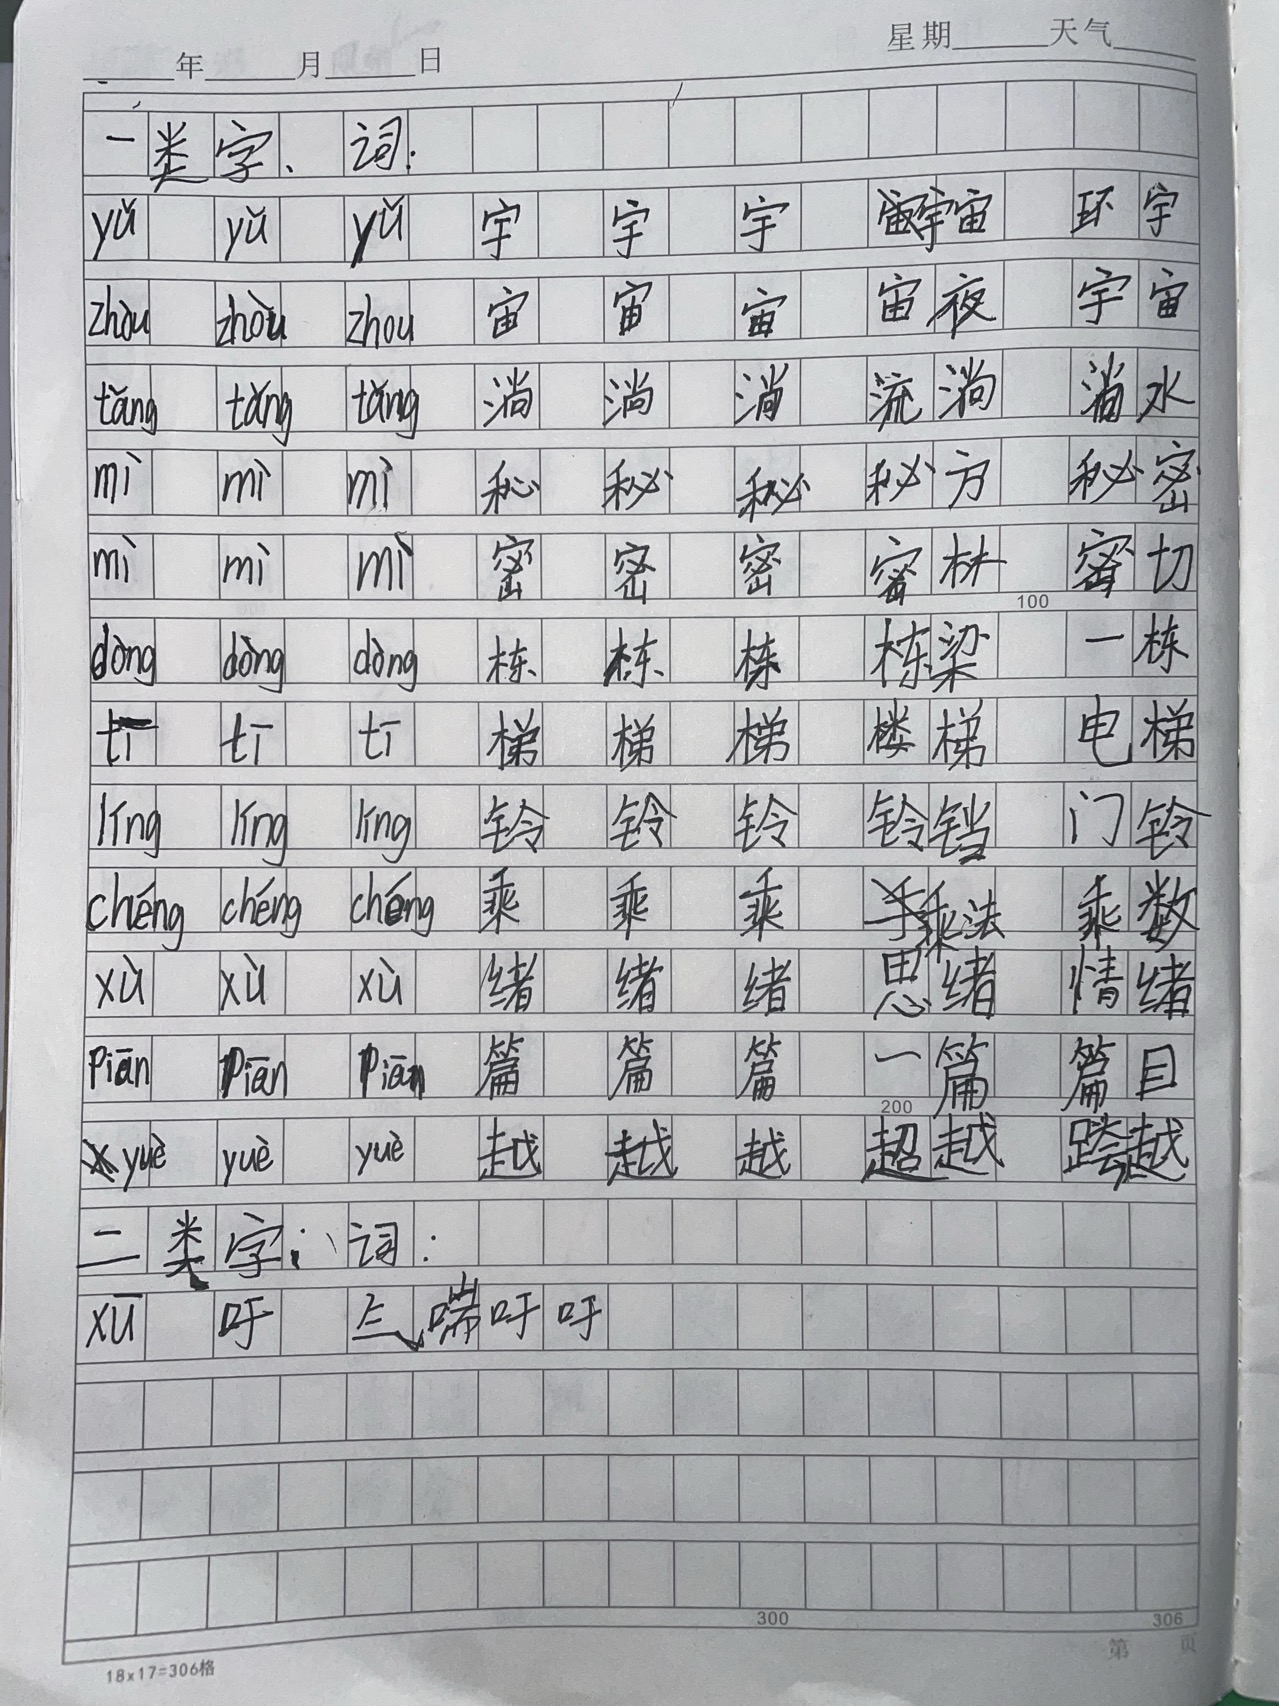 年 月 日 星期 天气
一类字、词:
yǔ yǔ yǔ 宇 宇 宇 宇宙 环宇
zhòu zhòu zhou 宙 宙 宙 宙夜 宇宙
tǎng tǎng tǎng 淌 淌 淌 流淌 淌水
mì mì mì 秘 秘 秘 秘方 秘密
mì mì mì 密 密 密 密林 密切
100
dòng dòng dòng 栋 栋 栋 栋梁 一栋
tī tī tī 梯 梯 梯 楼梯 电梯
líng líng líng 铃 铃 铃 铃铛 门铃
chéng chéng chéng 乘 乘 乘 乘法 乘数
xù xù xù 绪 绪 绪 思绪 情绪
piān piān piān 篇 篇 篇 一篇 篇目
200
yuè yuè yuè 越 越 越 超越 跨越
二类字、词:
xū 吁 气喘吁吁
300 306
18×17=306格 第 页